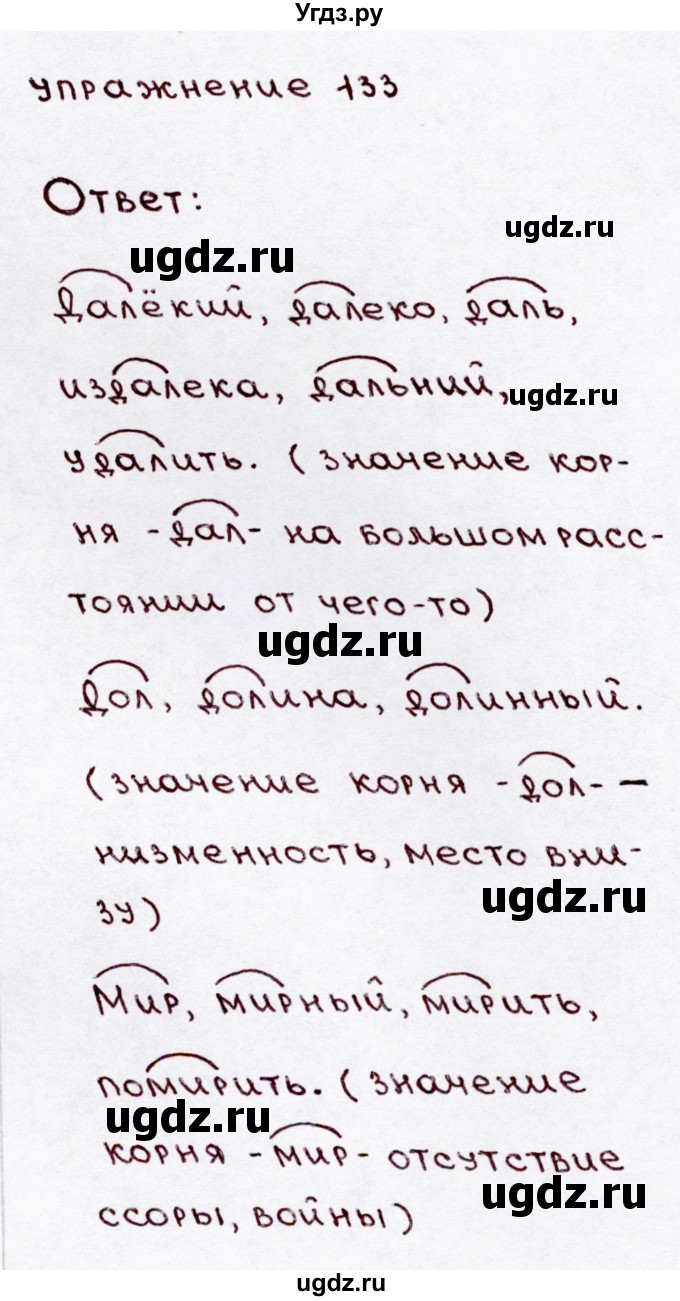 Угдз.ру
упражнение 133
Ответ:
ugdz.ru
ugdz.ru
Далёкий, далеко, даль,
издалека, дальний,
ugdz.ru
удалить. (значение кор-
ня -дал- на большом расс-
тоянии от чего-то)
ugdz.ru
Дол, долина, долинный.
(значение корня -дол- —
низменность, место вни-
ugdz.ru
зу)
Мир, мирный, мирить,
помирить. (значение
ugdz.ru
корня -мир- отсутствие
ugdz.ru
ссоры, войны)
ugdz.ru